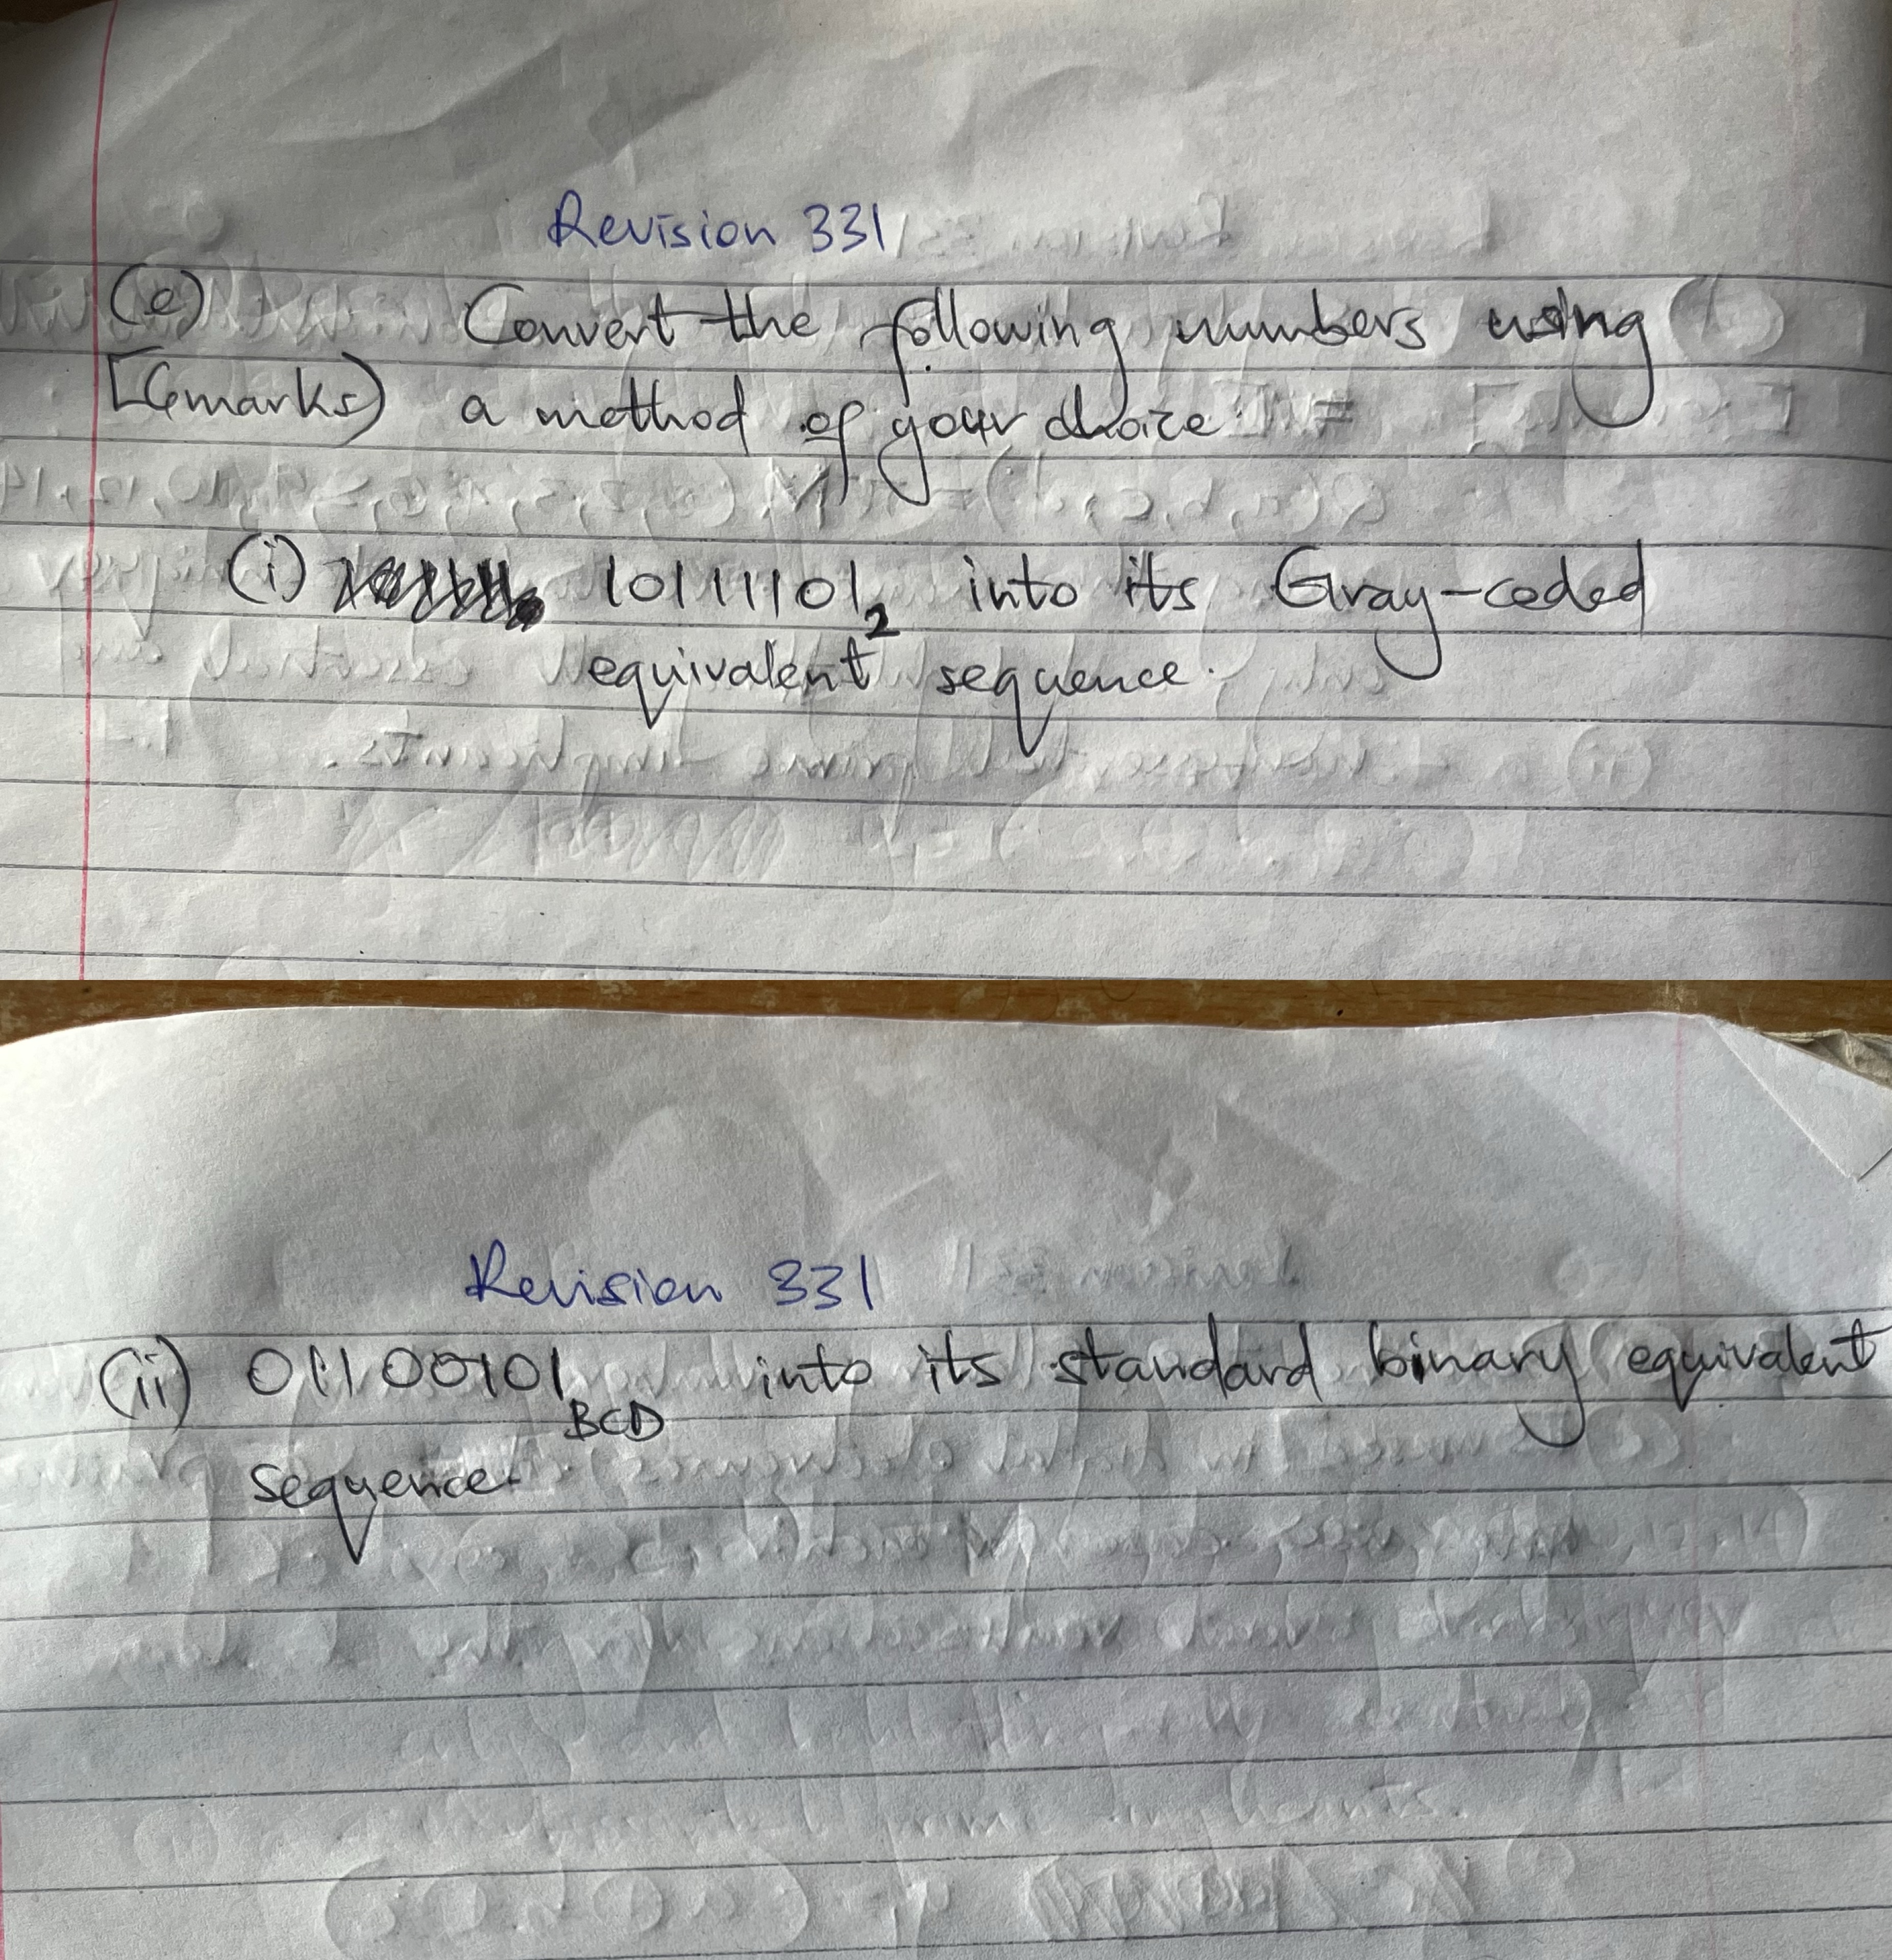 Revision 331
(e) Convert the following numbers using
[6marks) a method of your choice
(i) 10111101₂ into its Gray-coded
equivalent sequence.
Revision 331
(ii) 01100101 BCD into its standard binary equivalent
sequence.